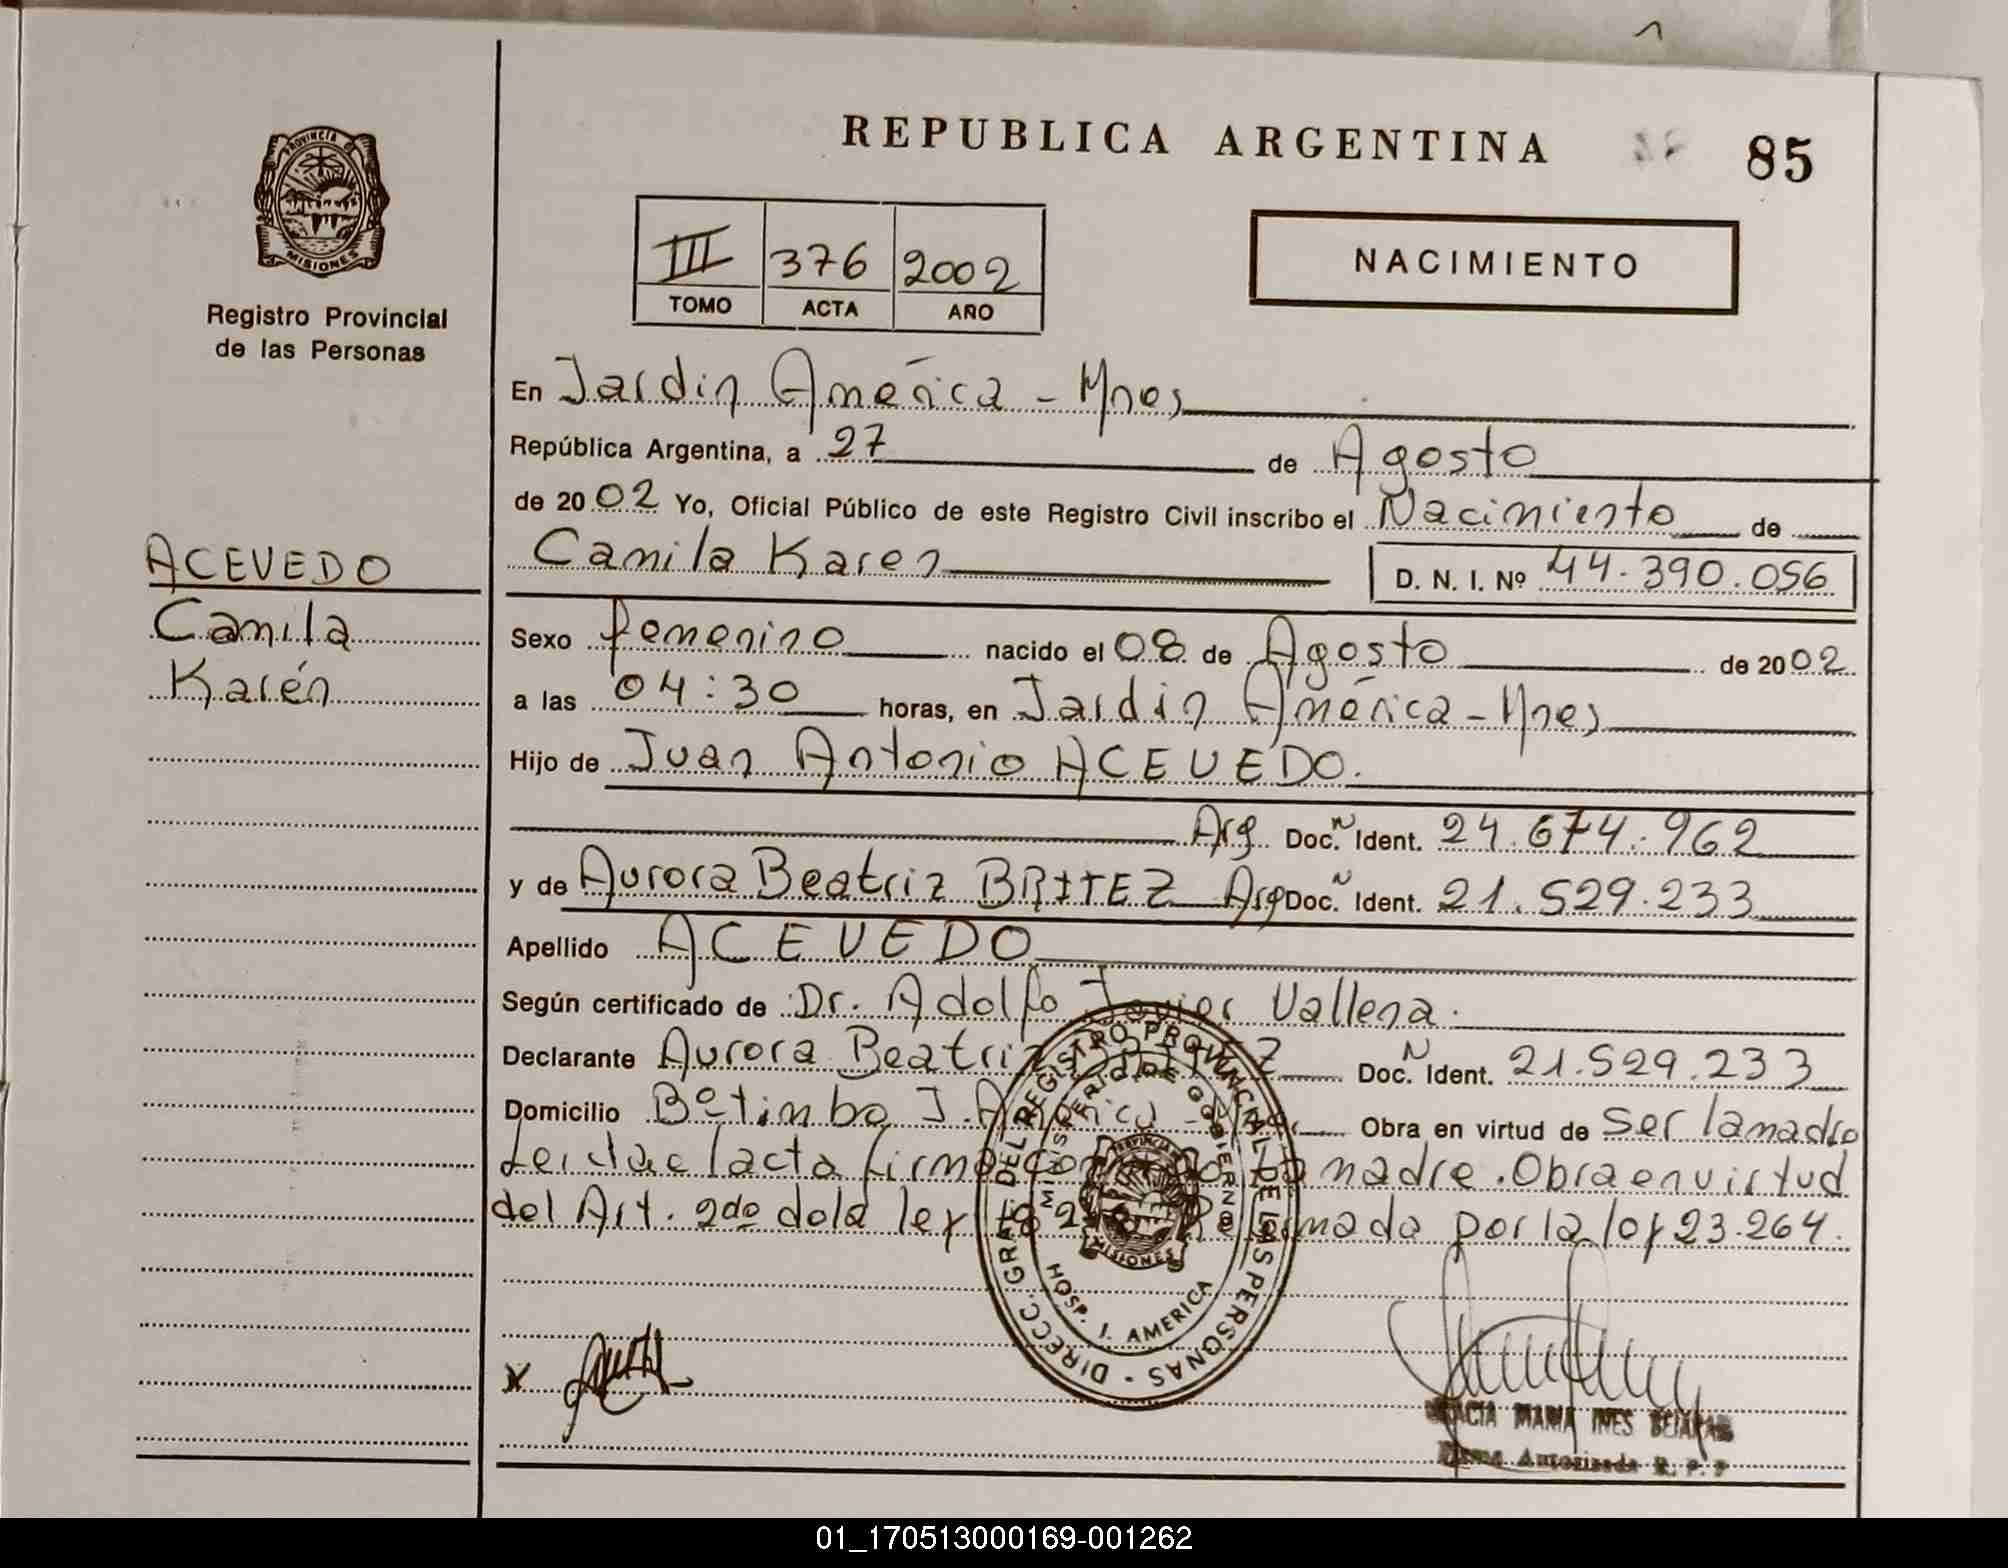 REPUBLICA ARGENTINA
85
PROVINCIA DE
MISIONES
Registro Provincial
de las Personas
III 376 2002
TOMO ACTA AÑO
NACIMIENTO
En Jardin América - Mnes
República Argentina, a 27 de Agosto
de 2002 Yo, Oficial Público de este Registro Civil inscribo el Nacimiento de
Camila Karen D. N. I. Nº 44.390.056
ACEVEDO
Camila
Karén
Sexo femenino nacido el 08 de Agosto de 2002
a las 04:30 horas, en Jardin América - Mnes
Hijo de Juan Antonio ACEVEDO.
Arg Doc. N Ident. 24.674.962
y de Aurora Beatriz BRITEZ Arg Doc. N Ident. 21.529.233
Apellido ACEVEDO
Según certificado de Dr. Adolfo Javier Vallena.
Declarante Aurora Beatriz BRITEZ Doc. N Ident. 21.529.233
Domicilio Bº timbo J. América - Obra en virtud de ser la madre
Leida el acta firma la madre. Obra en virtud
del Art. 2do de la ley por la ley 23.264.
DIRECC. GRAL. DEL REGISTRO PROVINCIAL DE LAS PERSONAS
MINISTERIO DE GOBIERNO
PROVINCIA DE
MISIONES
HOSP. J. AMERICA
x
MARIA INES
Firma Autorizada R. P. P
01_170513000169-001262